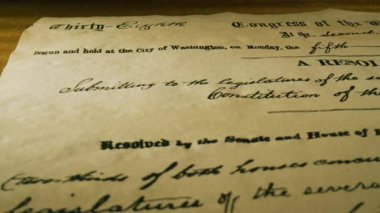 Thirty-Eighth Congress of the
At the second
Begun and held at the City of Washington, on Monday, the fifth
A RESOL
Submitting to the legislatures of the se
Constitution of th
Resolved by the Senate and House of
(two-thirds of both houses concu
legislatures of the severa